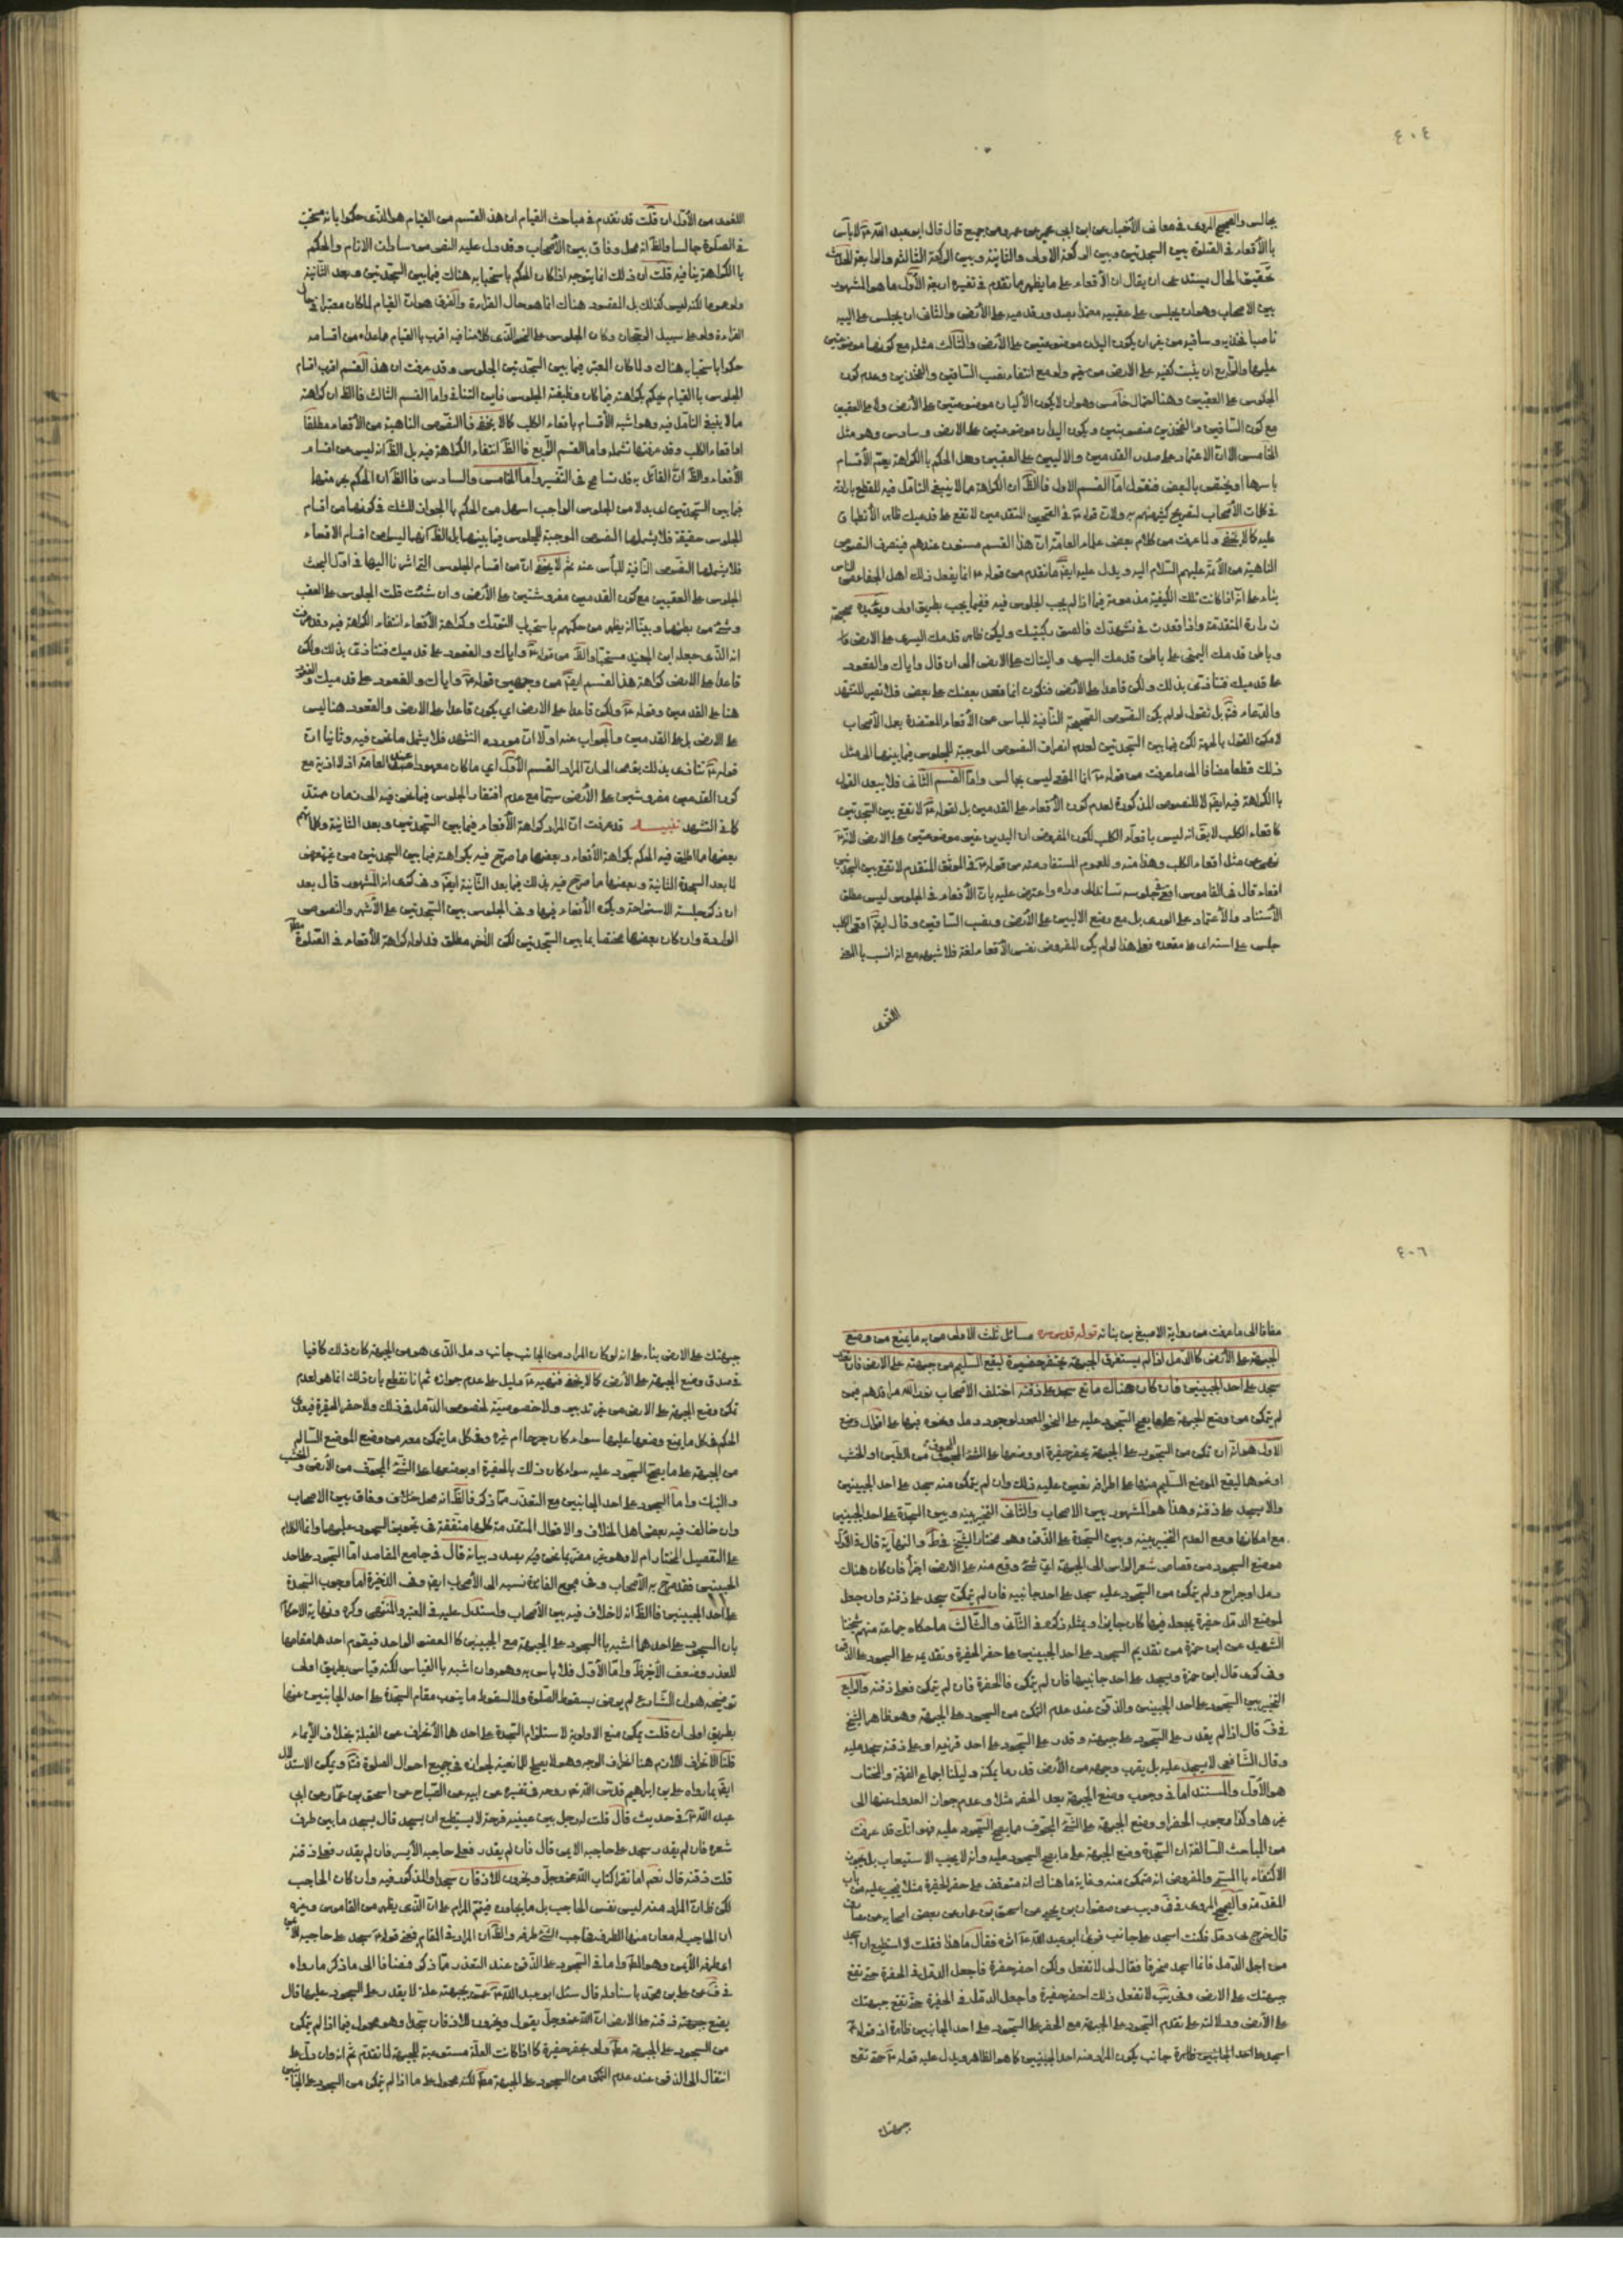 ٤٠٤
بجالس والصحيح المروي في معاني الأخبار عن ابن ابي عمير عن عمرو بن جميع قال قال ابو عبد الله ع لا بأس
بالأقعاء في الصلوة بين السجدتين وبين الركعة الاولى والثانية وبين الركعة الثالثة والرابعة
تحقيق الحال يستدعى ان يقال ان الأقعاء على ما يظهر مما تقدم في تفسيره اربعة الأول ما هو المشهور
بين الاصحاب وهو ان يجلس على عقبيه معتمدا بصدور قدميه على الأرض والثاني ان يجلس على اليتيه
ناصبا فخذيه وساقيه من غير ان يكون اليدان موضوعتين على الأرض والثالث مثله مع كونهما موضوعتين
عليها والرابع ان يثبت كفيه على الارض من غير ولو مع انتفاء نصب الساقين والفخذين وعدم كون
الجلوس على العقبين وهنا احتمال خامس وهو ان لا يكون الأليان موضوعتين على الأرض ولا على العقبين
مع كون الساقين والفخذين منصوبتين ويكون اليدان موضوعتين على الارض وسادس وهو مثل
الخامس الا ان الاعتماد على صدر القدمين والاليين على العقبين وهل الحكم بالكراهة يعم الأقسام
باسرها او يختص بالبعض فنقول اما القسم الاول فالظ ان الكراهة مما لا ينبغي التامل فيه للقطع بارادته
في كلمات الأصحاب لتصريح كثير منهم به ولان قوله ع في الصحيحين المتقدمين لا تقع على قدميك ظاهر الأنطباق
عليه كما لا يخفى ولما عرفت من كلام بعض علماء العامة ان هذا القسم مسنون عندهم فينصرف النصوص
الناهية من الأئمة عليهم السلام اليه ويدل عليه ايضا ما تقدم من قوله ع انما يفعل ذلك اهل الجفا من الناس
بناء على انه اذا كانت تلك الكيفية مذمومة فيما اذا لم يجب الجلوس فيه ففيما يجب بطريق اولى ويؤيده صحيحة
زرارة المتقدمة واذا قعدت في تشهدك فالصق ركبتيك وليكن ظاهر قدمك اليسرى على الارض
وباطن قدمك اليمنى على باطن قدمك اليسرى واليتاك على الارض الى ان قال واياك والقعود
على قدميك فتتأذى بذلك ولكن قاعدا على الأرض فتكون انما قعد بعضك على بعض فلا تصبر للتشهد
والدعاء فتم بل نقول لو لم يكن النصوص الصحيحة النافية للباس عن الأقعاء المعتضدة بعمل الأصحاب
لامكن القول بالحرمة لكن فيما بين السجدتين لعدم انصراف النصوص الموجبة للجلوس فيما بينهما الى مثل
ذلك قطعا مضافا الى ما عرفت من قوله ع اذا المقعي ليس بجالس واما القسم الثاني فلا يبعد القول
بالكراهة فيه ايضا لا للنصوص المذكورة لعدم كون الأقعاء على القدمين بل لقوله ع لا تقع بين السجدتين
كاقعاء الكلب لا يق انه ليس باقعاء الكلب لكون المفروض ان اليدين غير موضوعتين على الارض لانه
نهى عن مثل اقعاء الكلب وهذا منه وللعموم المستفاد منه من قوله ع في الموثق المتقدم لا تقع بين السجدتين
اقعاء قال في القاموس اقعى في جلوسه تساند الى ما وراه واعترض عليه بان الأقعاء في الجلوس ليس مطلق
الأستناد والأعتماد على الورى بل مع وضع الاليين على الأرض ونصب الساقين وقال ايضا اقعى الكلب
جلس على استه اى على مقعده فعلى هذا لو لم يكن المفروض نفس الأقعاء لغة فلا شبهة مع انه انسب بالمعنى
اللغوى
اللغوى من الأول ان قلت قد تقدم في مباحث القيام ان هذا القسم من القيام هو الذي حكموا بانه مستحب
في الصلوة جالسا والظ انه محل وفاق بين الأصحاب وقد دل عليه النص من سادات الانام والحكم
بالكراهة ينافيه قلت ان ذلك انما يتوجه اذا كان الحكم باستحبابه هناك فيما بين السجدتين وبعد الثانية
ولو عموما لكنه ليس كذلك بل المقصود هناك انما هو حال القراءة والفرق هو ان القيام لما كان معتبرا في حال
القراءة ولو على سبيل الرجحان وكان الجلوس على النحو الذي كلامنا فيه اقرب بالقيام مما عداه من اقسامه
حكموا باستحبابه هناك ولما كان المعتبر فيما بين السجدتين الجلوس وقد عرفت ان هذا القسم اقرب اقسام
الجلوس بالقيام حكم بكراهته فيما كان وظيفته الجلوس فاين التنافي واما القسم الثالث فالظ ان كراهته
مما لا ينبغي التامل فيه وهو اشبه الأقسام باقعاء الكلب كما لا يخفى فالنصوص الناهية عن الأقعاء مطلقا
او اقعاء الكلب وقد عرفتها تشمله واما القسم الرابع فالظ انتفاء الكراهة فيه بل الظ انه ليس من اقسام
الأقعاء والظ ان القائل به قد تسامح في التفسير واما الخامس والسادس فالظ ان الحكم بحرمتها
فيما بين السجدتين اى بدلا من الجلوس الواجب اسهل من الحكم بالجواز للشك في كونهما من اقسام
الجلوس حقيقة فلا يشملها النصوص الموجبة للجلوس فيما بينهما بل الظ انهما ليسا من اقسام الاقعاء
فلا يشملها النصوص النافية للبأس عنه ثم لا يخفى ان من اقسام الجلوس التي اشرنا اليها في اول البحث
الجلوس على العقبين مع كون القدمين مفروشتين على الأرض وان شئت قلت الجلوس على العقب
وشئ من بطنها وبينا انه يظهر من حكمهم باستحباب التورك وكراهة الأقعاء انتفاء الكراهة فيه وقد عرفت
انه الذى جعله ابن الجنيد مستحبا والظ من قوله ع واياك والقعود على قدميك فتتأذى بذلك ولكن
قاعدا على الارض كراهة هذا القسم ايضا من وجهين قوله ع واياك والقعود على قدميك والقعود
هنا على القدمين وقوله ع ولكن قاعدا على الارض اي يكون قاعدا على الارض والقعود هنا ليس
على الارض بل على القدمين والجواب عنه اولا ان مورده التشهد فلا يشمل ما نحن فيه وثانيا ان
قوله ع تتأذى بذلك يقتضى الى ان المراد القسم الأول اي ما كان معهودا عند العامة اذ لا اذية مع
كون القدمين مفروشين على الأرض سيما مع عدم افتقار الجلوس فيما نحن فيه الى زمان ممتد
كما في التشهد تنبيه قد عرفت ان المراد كراهة الأقعاء فيما بين السجدتين وبعد الثانية وكلماتهم
بعضها ما اطلق فيه الحكم بكراهة الأقعاء وبعضها ما صرح فيه بكراهته فيما بين السجدتين من غير تعرض
لما بعد السجدة الثانية وبعضها ما صرح فيه بذلك فيما بعد الثانية ايضا وفي كرى انه المشهور قال بعد
ان ذكر جلسة الاستراحة ويكره الأقعاء فيها وفي الجلوس بين السجدتين على الأشهر والنصوص
الواردة وان كان بعضها مختصا بما بين السجدتين لكن الأخر مطلق فدلوله كراهة الأقعاء في الصلوة مطلقا
٤٠٦
مضافا الى ما عرفت من رواية الاصبغ بن نباته قوله قدس سره مسائل ثلث الاولى من به ما يمنع من وضع
الجبهة على الأرض كالدمل اذا لم يستغرق الجبهة يحتفر حفيرة ليقع السليم من جبهته على الارض فان
سجد على احد الجبينين فان كان هناك مانع سجد على ذقنه اختلف الأصحاب نور الله مراقدهم فيمن
لم يتمكن من وضع الجبهة على ما يصح السجود عليه على النحو المعهود لوجود دمل ونحوه فيها على اقوال
الاول هو انه ان تمكن من السجود على الجبهة بحفر حفيرة او وضعها على الشئ المجوف من الطين او الخشب
او نحوهما ليقع الموضع السليم منها على اطرافه تعين عليه ذلك وان لم يتمكن منه سجد على احد الجبينين
والا سجد على ذقنه وهذا هو المشهور بين الاصحاب والثاني التخيير بينه وبين السجدة على احد الجبينين
مع امكانها ومع العدم التخيير بينه وبين السجدة على الذقن وهو مختار الشيخ في ط والنهاية قال في الاول
موضع السجود من قصاص شعر الراس الى الجبهة اى شئ وقع منه على الارض اجزأ فان كان هناك
دمل او جراح ولم يتمكن من السجود عليه سجد على احد جانبيه فان لم يتمكن سجد على ذقنه وان جعل
لموضع الدمل حفيرة يجعله فيها كان جايزا ومثله ذكره في الثاني والثالث ما حكاه جماعة منهم شيخنا
الشهيد عن ابن حمزة من تقديم السجود على احد الجبينين على حفر الحفيرة وتقديمه على السجود على الذقن
وفي كرى قال ابن حمزة ويسجد على احد جانبيها فان لم يتمكن فالحفرة فان لم يتمكن فعلى ذقنه والرابع
التخيير بين السجود على احد الجبينين والذقن عند عدم التمكن من السجود على الجبهة وهو ظاهر الشيخ
في ف قال اذا لم يقدر على السجود على جبهته وقدر على السجود على احد قرنيه او على ذقنه سجد عليه
وقال الشافعي لا يسجد عليه بل يقرب وجهه من الأرض قدر ما يمكنه ودليلنا اجماع الفرقة والمختار
هو الأول والمستند اما في وجوب وضع الجبهة بعد الحفر مثلا وعدم جواز العدول عنها الى
غيرها وكذا وجوب الحفر او وضع الجبهة على الشئ المجوف مما يصح السجود عليه فهو انك قد عرفت
من المباحث السالفة ان السجدة وضع الجبهة على ما يصح السجود عليه وانه لا يجب الاستيعاب بل يجوز
الاكتفاء بالمسمى والمفروض انه متمكن منه وغاية ما هناك انه متوقف على حفر الحفيرة مثلا فيجب عليه من باب
المقدمة والصحيح المروى في في ويب عن صفوان بن يحيى عن اسحق بن عمار عن بعض اصحابه عن مصادف
قال خرج بى دمل فكنت اسجد على جانب فرأى ابو عبد الله ع اثره فقال ما هذا فقلت لا استطيع ان اسجد
من اجل الدمل فانما اسجد منحرفا فقال لى لا تفعل ولكن احفر حفرة فاجعل الدمل في الحفرة حتى تقع
جبهتك على الارض وفي يب لا تفعل ذلك احفر حفيرة واجعل الدمل في الحفرة حتى تقع جبهتك
على الأرض ودلالته على تقدم السجود على الجبهة مع الحفر على السجود على احد الجانبين ظاهرة اذ قوله ع
اسجد على احد الجانبين ظاهرة جانب يكون المراد منه احد الجبينين كما هو الظاهر ويدل عليه قوله ع حتى تقع
جبهتك
جبهتك على الارض بناء على انه لو كان المراد من الجانب جانب دمل الذى هو من الجبهة كان ذلك كافيا
في صدق وضع الجبهة على الأرض كما لا يخفى فنهيه ع دليل على عدم جوازه ثم انا نقطع بان ذلك انما هو لعدم
تمكن وضع الجبهة على الارض من غير تدبير ولا خصوصية لخصوص الدمل في ذلك ولا حفر الحفيرة فيعدى
الحكم في كل ما يمنع وضعها عليها سواء كان جرحا ام غيره وفي كل ما يتمكن معه من وضع الموضع السالم
من الجبهة على ما يصح السجود عليه سواء كان ذلك بالحفيرة او بوضعها على الشئ المجوف من الأرض والخشب
والنبات واما السجود على احد الجانبين مع التعذر مما ذكر فالظ انه محل خلاف وفاق بين الاصحاب
وان خالف فيه بعض اهل الخلاف والاقوال المتقدمة كلها متفقة في تجويز السجود عليها وانما الكلام
على التفصيل المختار ام لا وهو غير مضر بما نحن فيه بصدد بيانه قال في جامع المقاصد اما السجود على احد
الجبينين فقد صرح به الأصحاب وفي مجمع الفائدة نسبه الى الأصحاب ايضا وفي الذخيرة اما وجوب السجدة
على احد الجبينين فالظ انه لا خلاف فيه بين الأصحاب واستدل عليه في المعتبر والمنتهى وكره ونهاية الاحكام
بان السجود على احدهما اشبه بالسجود على الجبهة مع الجبينين كالعضو الواحد فيقوم احدهما مقامها
للعذر وضعف الأخر ظ واما الأول فلا باس به وهو وان اشبه بالقياس لكنه قياس بطريق اولى
توضيحه هو ان الشارع لم يرض بسقوط الصلوة ولا لسقوط ما ينوب مقام السجدة على احد الجانبين عنها
بطريق اولى ان قلت يمكن منع الاولوية لاستلزام السجدة على احدهما الأنحراف عن القبلة بخلاف الأيماء
قلنا الانحراف اللازم هنا انحراف الوجه وهو لا يصلح للمانعية لجوازه في جميع احوال الصلوة فتم ويمكن الاستدلال
ايضا بما رواه على بن ابراهيم قدس الله روحه في تفسيره عن ابيه عن الصباح عن اسحق بن عمار عن ابى
عبد الله ع في حديث قال قلت له رجل بين عينيه قرحة لا يستطيع ان يسجد قال يسجد ما بين طرف
شعره فان لم يقدر سجد على حاجبه الايمن قال فان لم يقدر فعلى حاجبه الأيسر فان لم يقدر فعلى ذقنه
قلت ذقنه قال نعم اما تقرأ كتاب الله عز وجل ويخرون للاذقان سجدا والمذكور فيه وان كان الحاجب
لكن ظ ان المراد منه ليس نفس الحاجب بل ما يجاوره فيتم المرام على ان الذى يظهر من القاموس وغيره
ان الحاجب له معان منها الطرف فحاجب الشئ طرفه والظ ان المراد في المقام فيصح قوله ع سجد على حاجبه الايمن
اى طرفه الأيمن وهو المط واما في السجود على الذقن عند التعذر مما ذكر فمضافا الى ما ذكر ما رواه
في في عن على بن محمد باسناد له قال سئل ابو عبد الله ع عمن بجبهته علة لا يقدر على السجود عليها قال
يضع جبهته ذقنه على الارض ان الله عز وجل يقول ويخرون للاذقان سجدا وهو محمول فيما اذا لم يتمكن
من السجود على الجبهة مط ولو بحفر حفيرة كما اذا كانت العلة مستوعبة للجبهة لما تقدم ثم انه وان دل على
انتقال الى الذقن عند عدم التمكن من السجود على الجبهة مط لكنه محمول على ما اذا لم يتمكن من السجود على الجبينين